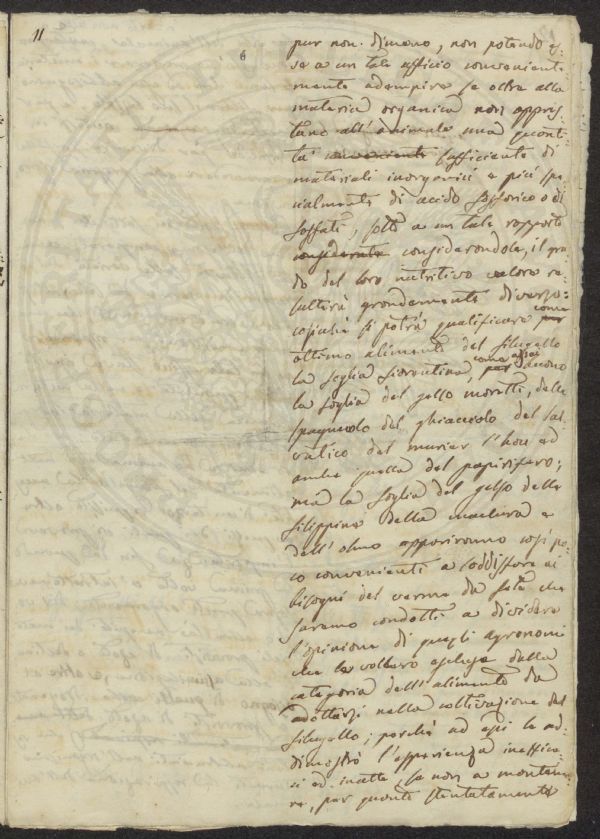 11
6
pur non dimeno, non potendo es-
se a un tale officio conveniente
mente adempire se oltre alla
materia organica non appris-
tano all'animale una quanti-
tà conveniente sufficiente di
materiali inorganici e più spe-
cialmente di acido fosforico o di
fosfati, sotto a un tale rapporto
considerate considerandole, il gra-
do del loro nutritivo valore re-
sulterà grandemente diverso:
cosicchè si potrà qualificare per come
ottimo alimento del filugello
la foglia fiorentina, per come assai buono
la foglia del gelso moretti, dello
spagnuolo del ghiacciolo del sal-
vatico del murier l'hou ed
anche quella del papirifero;
ma la foglia del gelso delle
filippine della maclura e
dell'olmo appariranno così po-
co convenienti a soddisfare ai
bisogni del verme da seta che
saremo condotti a dividere
l'opinione di quegli agronomi
che le vollero escluse dalla
categoria dell'alimento da
adottarsi nella coltivazione del
filugello; perchè ad essi le ad-
dimostrò l'esperienza ineffica-
ci ed inette, se non a mantene-
re, per quanto stentatamente